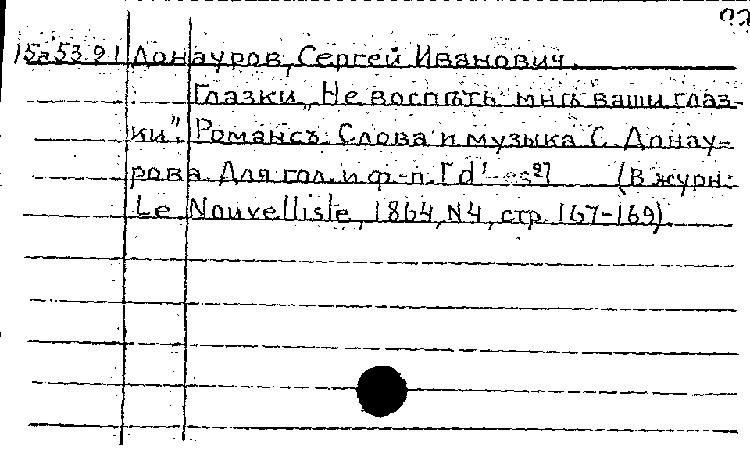 15а53.91 Донауров, Сергей Иванович.
Глазки. „Не воспѣть мнѣ ваши глаз-
ки". Романсъ. Слова и музыка С. Донау-
рова. Для гол. и ф-п. [d¹-es²] (В журн:
Le Nouvelliste, 1864, N4, стр. 167-169).